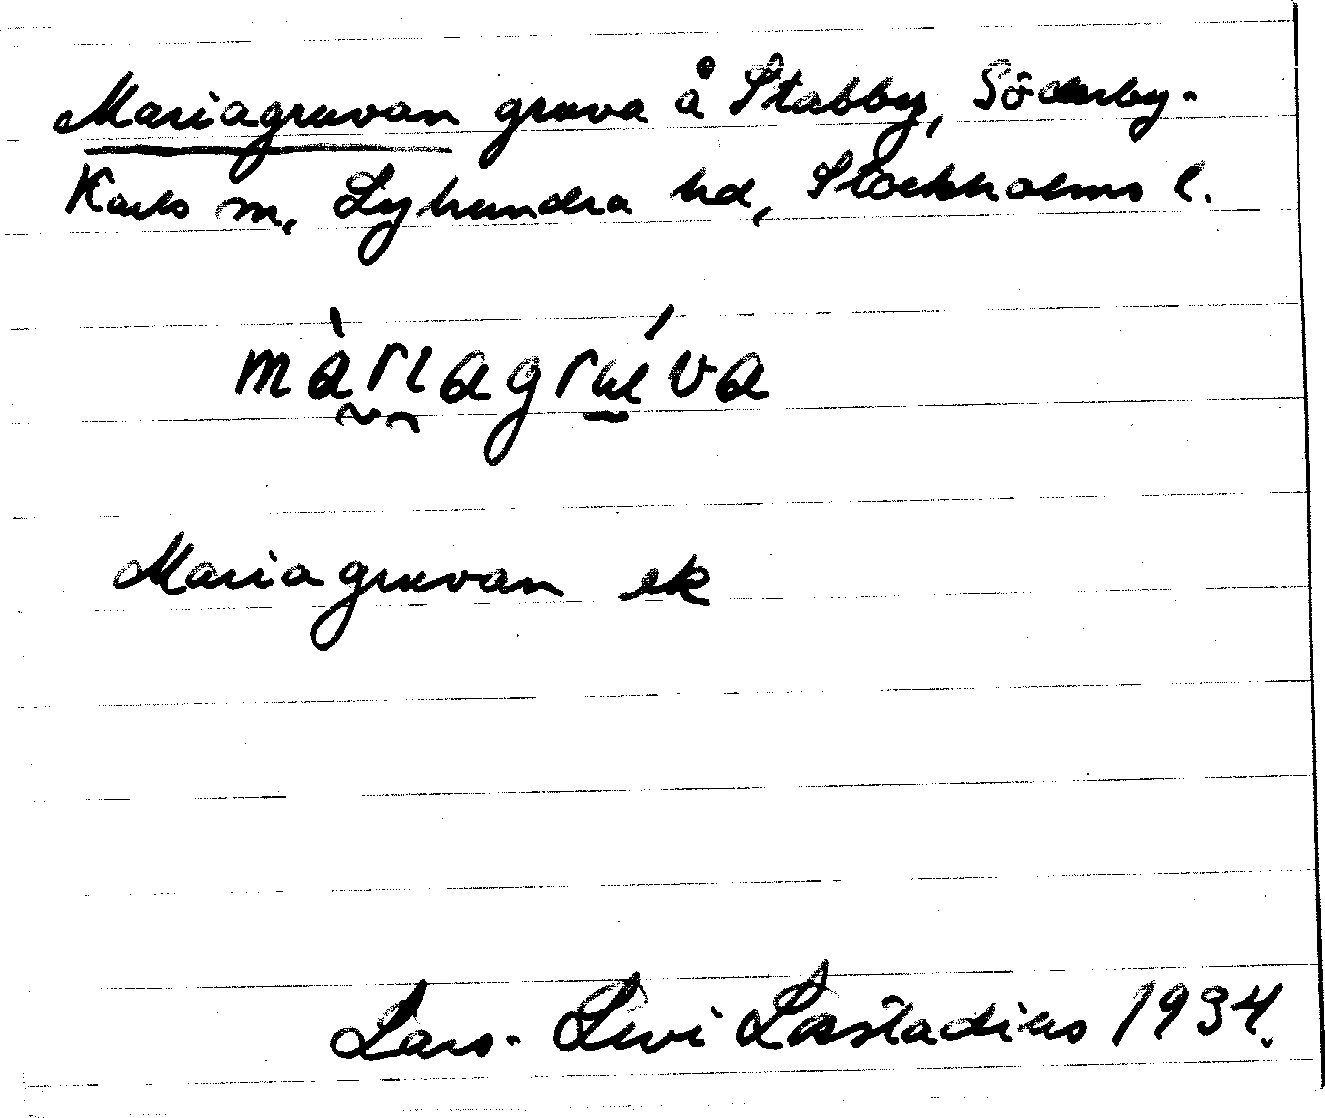 Mariagruvan gruva å Stabby, Söderby-
Karls sn, Lyhundra hd, Stockholms l.
màriagrúva
Mariagruvan ek
Lars-Levi Læstadius 1934.